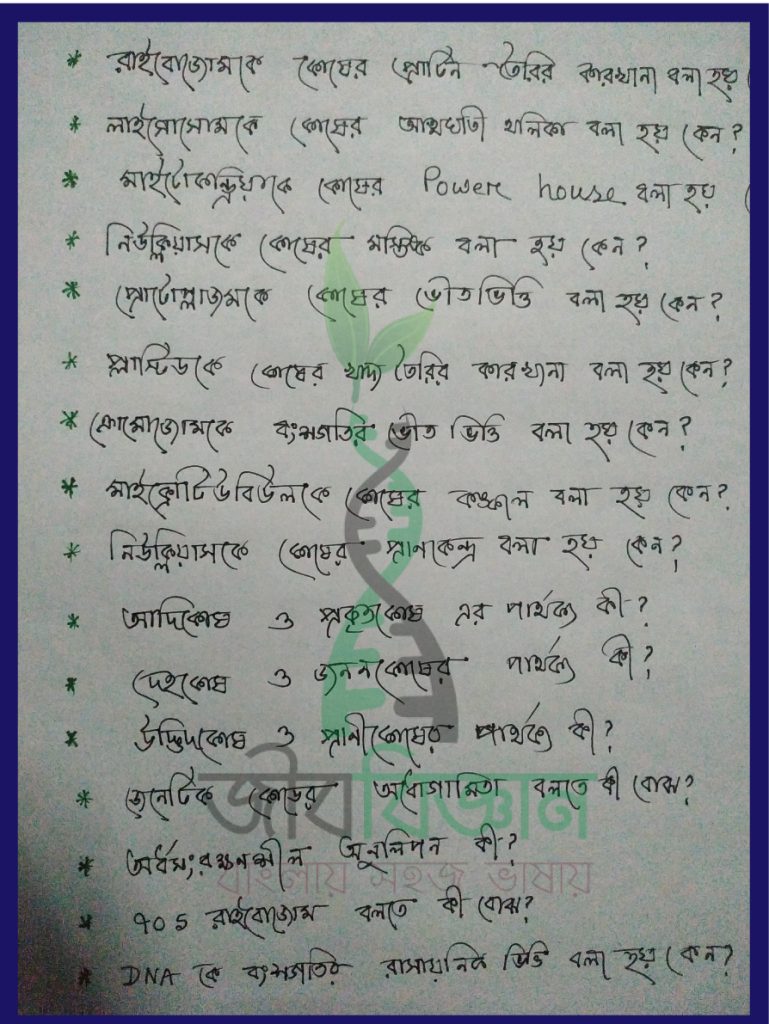 * রাইবোজোমকে কোষের প্রোটিন তৈরির কারখানা বলা হয়
* লাইসোসোমকে কোষের আত্মঘাতী থলিকা বলা হয় কেন?
* মাইটোকন্ড্রিয়াকে কোষের Power house বলা হয়
* নিউক্লিয়াসকে কোষের মস্তিষ্ক বলা হয় কেন?
* প্রোটোপ্লাজমকে কোষের ভৌতভিত্তি বলা হয় কেন?
* প্লাস্টিডকে কোষের খাদ্য তৈরির কারখানা বলা হয় কেন?
* ক্রোমোজোমকে বংশগতির ভৌত ভিত্তি বলা হয় কেন?
* মাইক্রোটিউবিউলকে কোষের কঙ্কাল বলা হয় কেন?
* নিউক্লিয়াসকে কোষের প্রাণকেন্দ্র বলা হয় কেন?
* আদিকোষ ও প্রকৃতকোষ এর পার্থক্য কী?
* দেহকোষ ও জননকোষের পার্থক্য কী?
* উদ্ভিদকোষ ও প্রাণীকোষের পার্থক্য কী?
* জেনেটিক কোডের অধোগামিতা বলতে কী বোঝ?
* অর্ধসংরক্ষণশীল অনুলিপন কী?
* 70S রাইবোজোম বলতে কী বোঝ?
* DNA কে বংশগতির রাসায়নিক ভিত্তি বলা হয় কেন?
জীববিজ্ঞান
বাংলায় সহজ ভাষায়